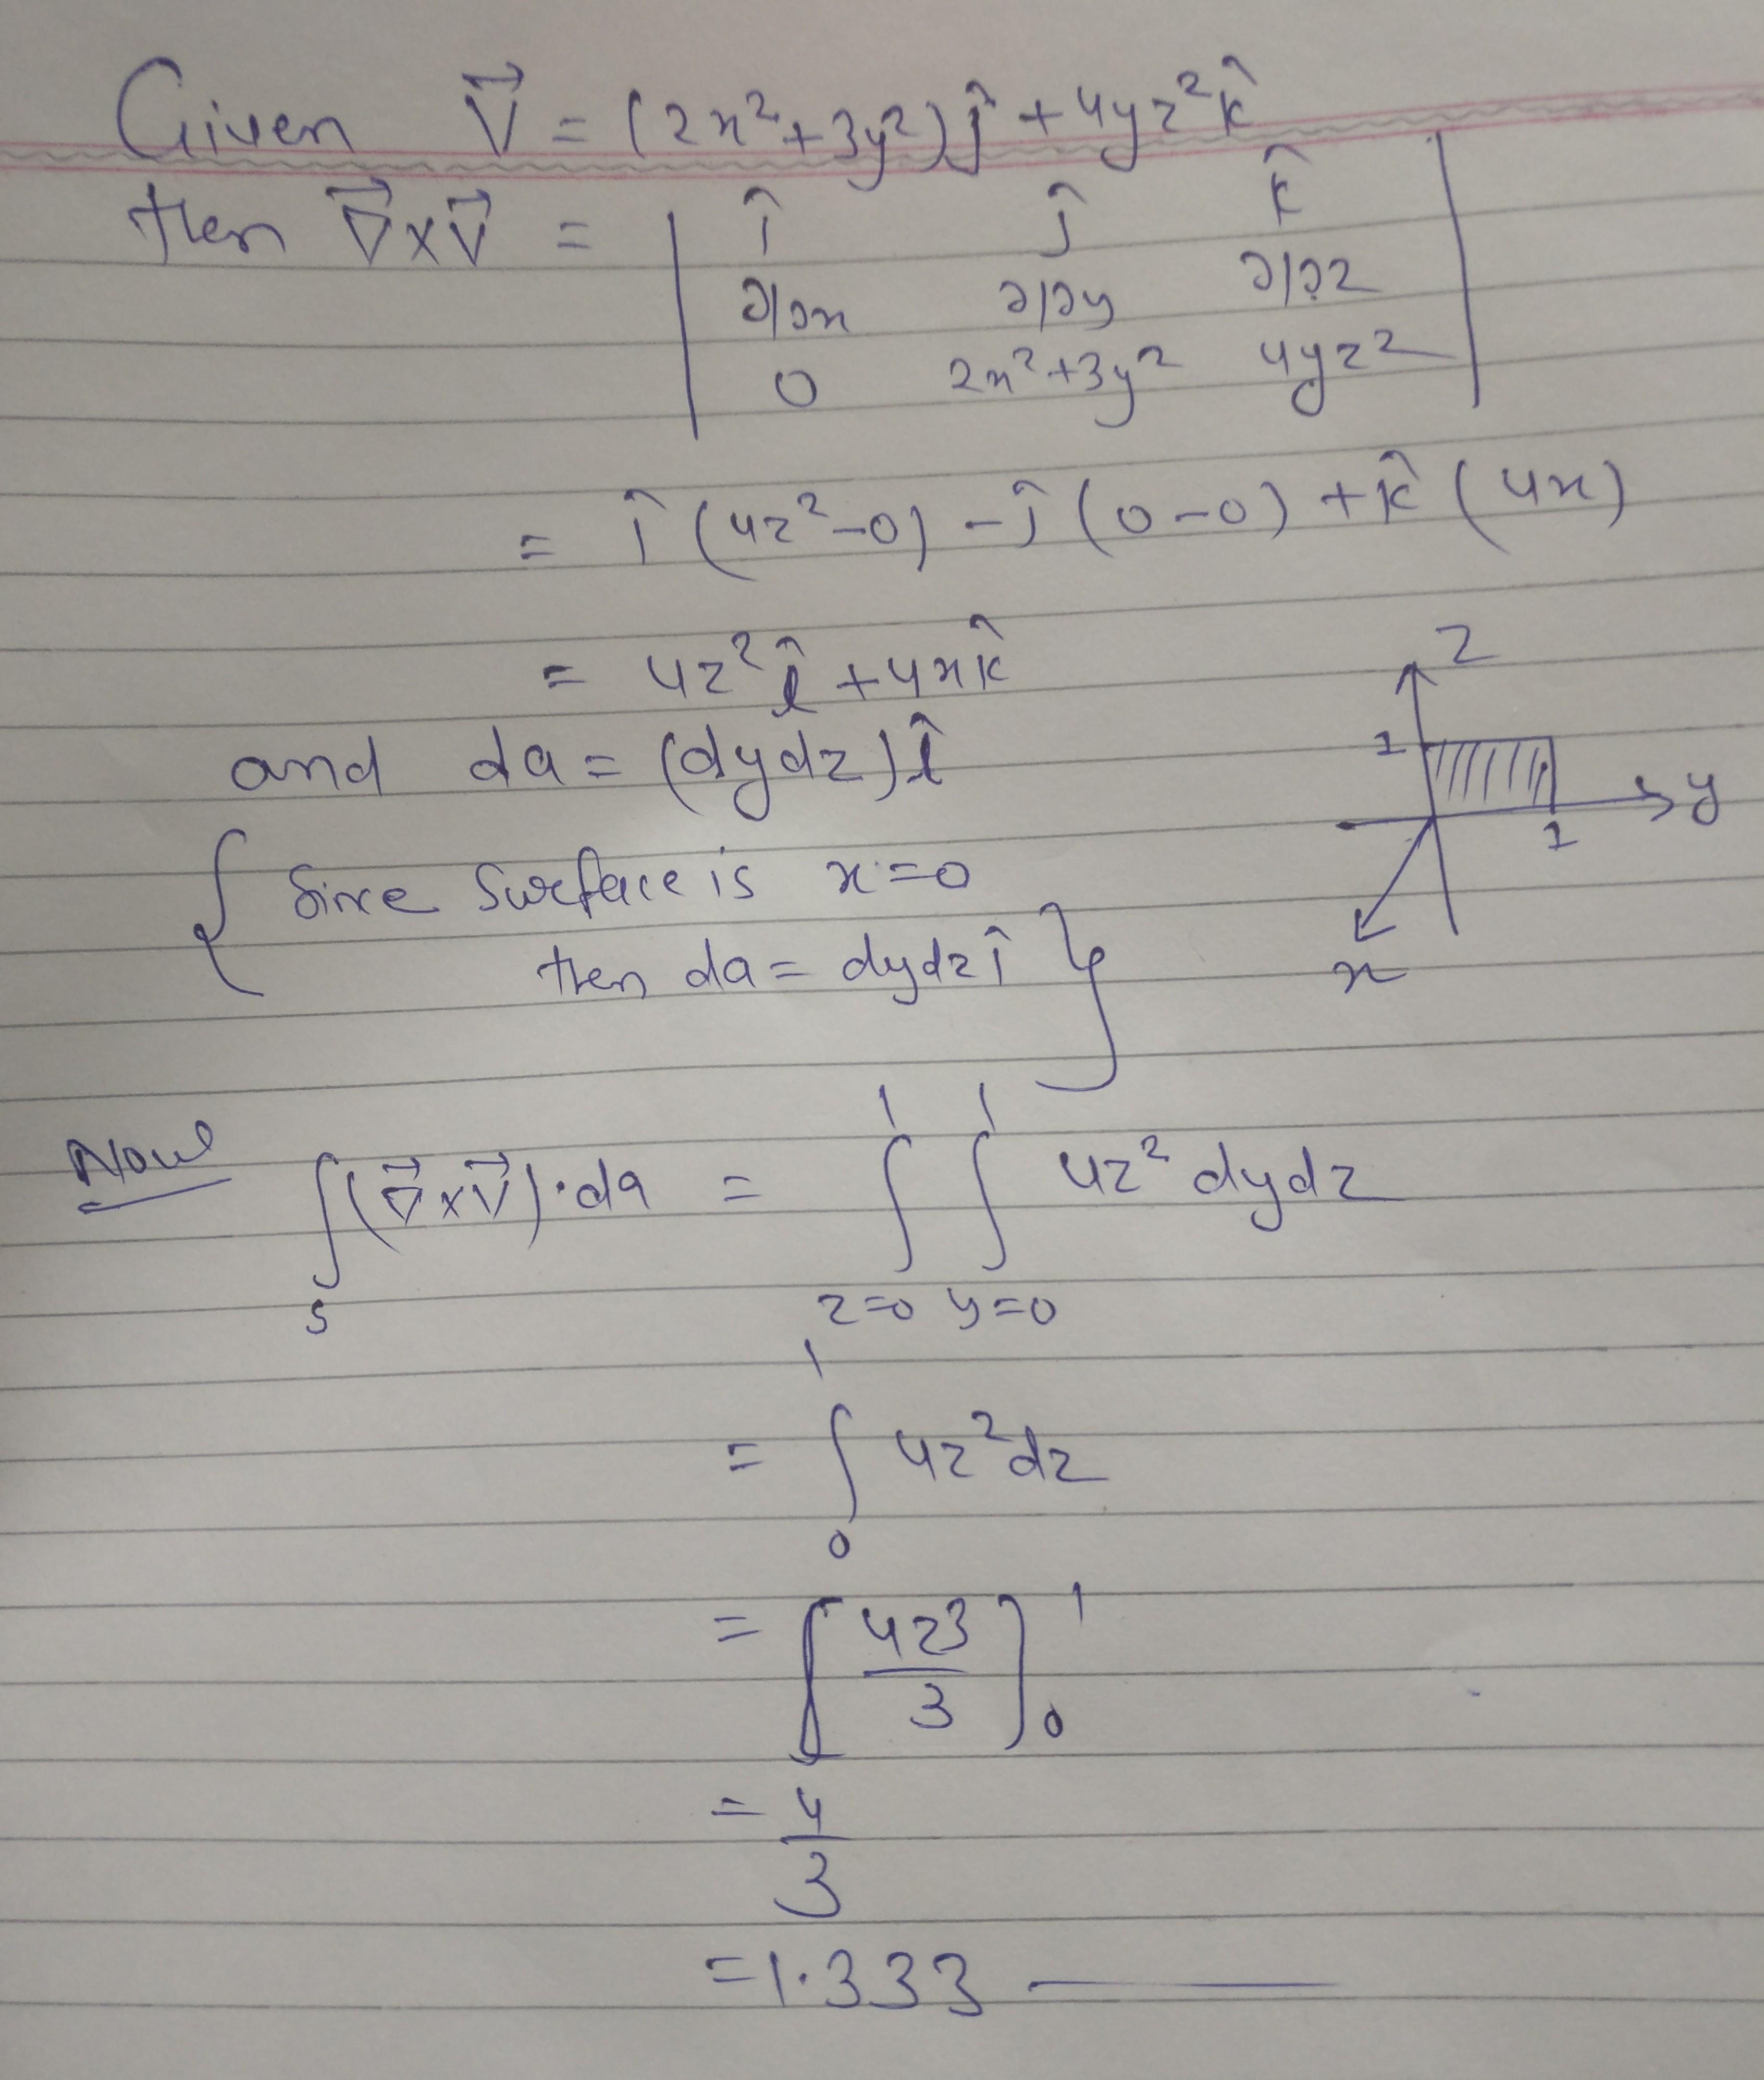 Given V⃗ = (2x²+3y²)ĵ + 4yz²k̂
then ∇⃗×V⃗ = | î ĵ k̂ |
∂/∂x ∂/∂y ∂/∂z
0 2x²+3y² 4yz²
= î (4z²-0) - ĵ (0-0) + k̂ (4x)
= 4z² î + 4x k̂
and da = (dydz) î
{ Since Surface is x=0
then da = dydz î }
z
1
y
1
x
Now ∫(∇⃗×V⃗)·da = ∫ ∫ 4z² dydz
S z=0 y=0
1 1
= ∫ 4z² dz
1
0
= [ 4z3 / 3 ] 1 0
= 4/3
= 1.333